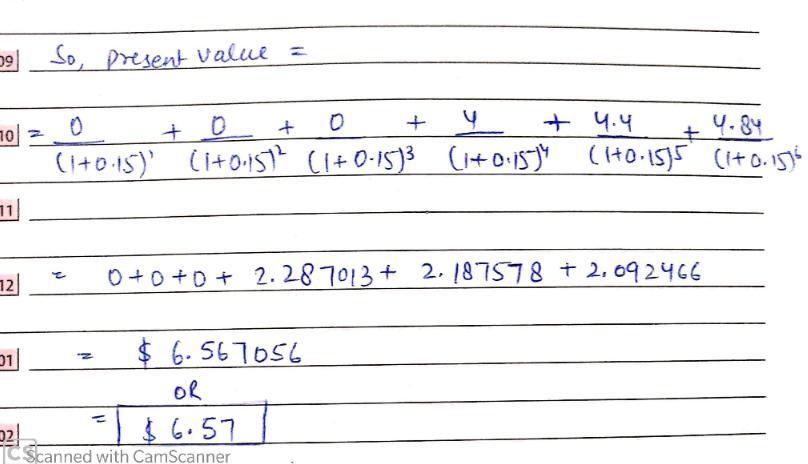 09 So, present value =
10 = 0/(1+0.15)¹ + 0/(1+0.15)² + 0/(1+0.15)³ + 4/(1+0.15)⁴ + 4.4/(1+0.15)⁵ + 4.84/(1+0.15)⁶
11
12 = 0+0+0+ 2.287013+ 2.187578 + 2.092466
01 = $ 6.567056
OR
02 = $ 6.57
CS Scanned with CamScanner